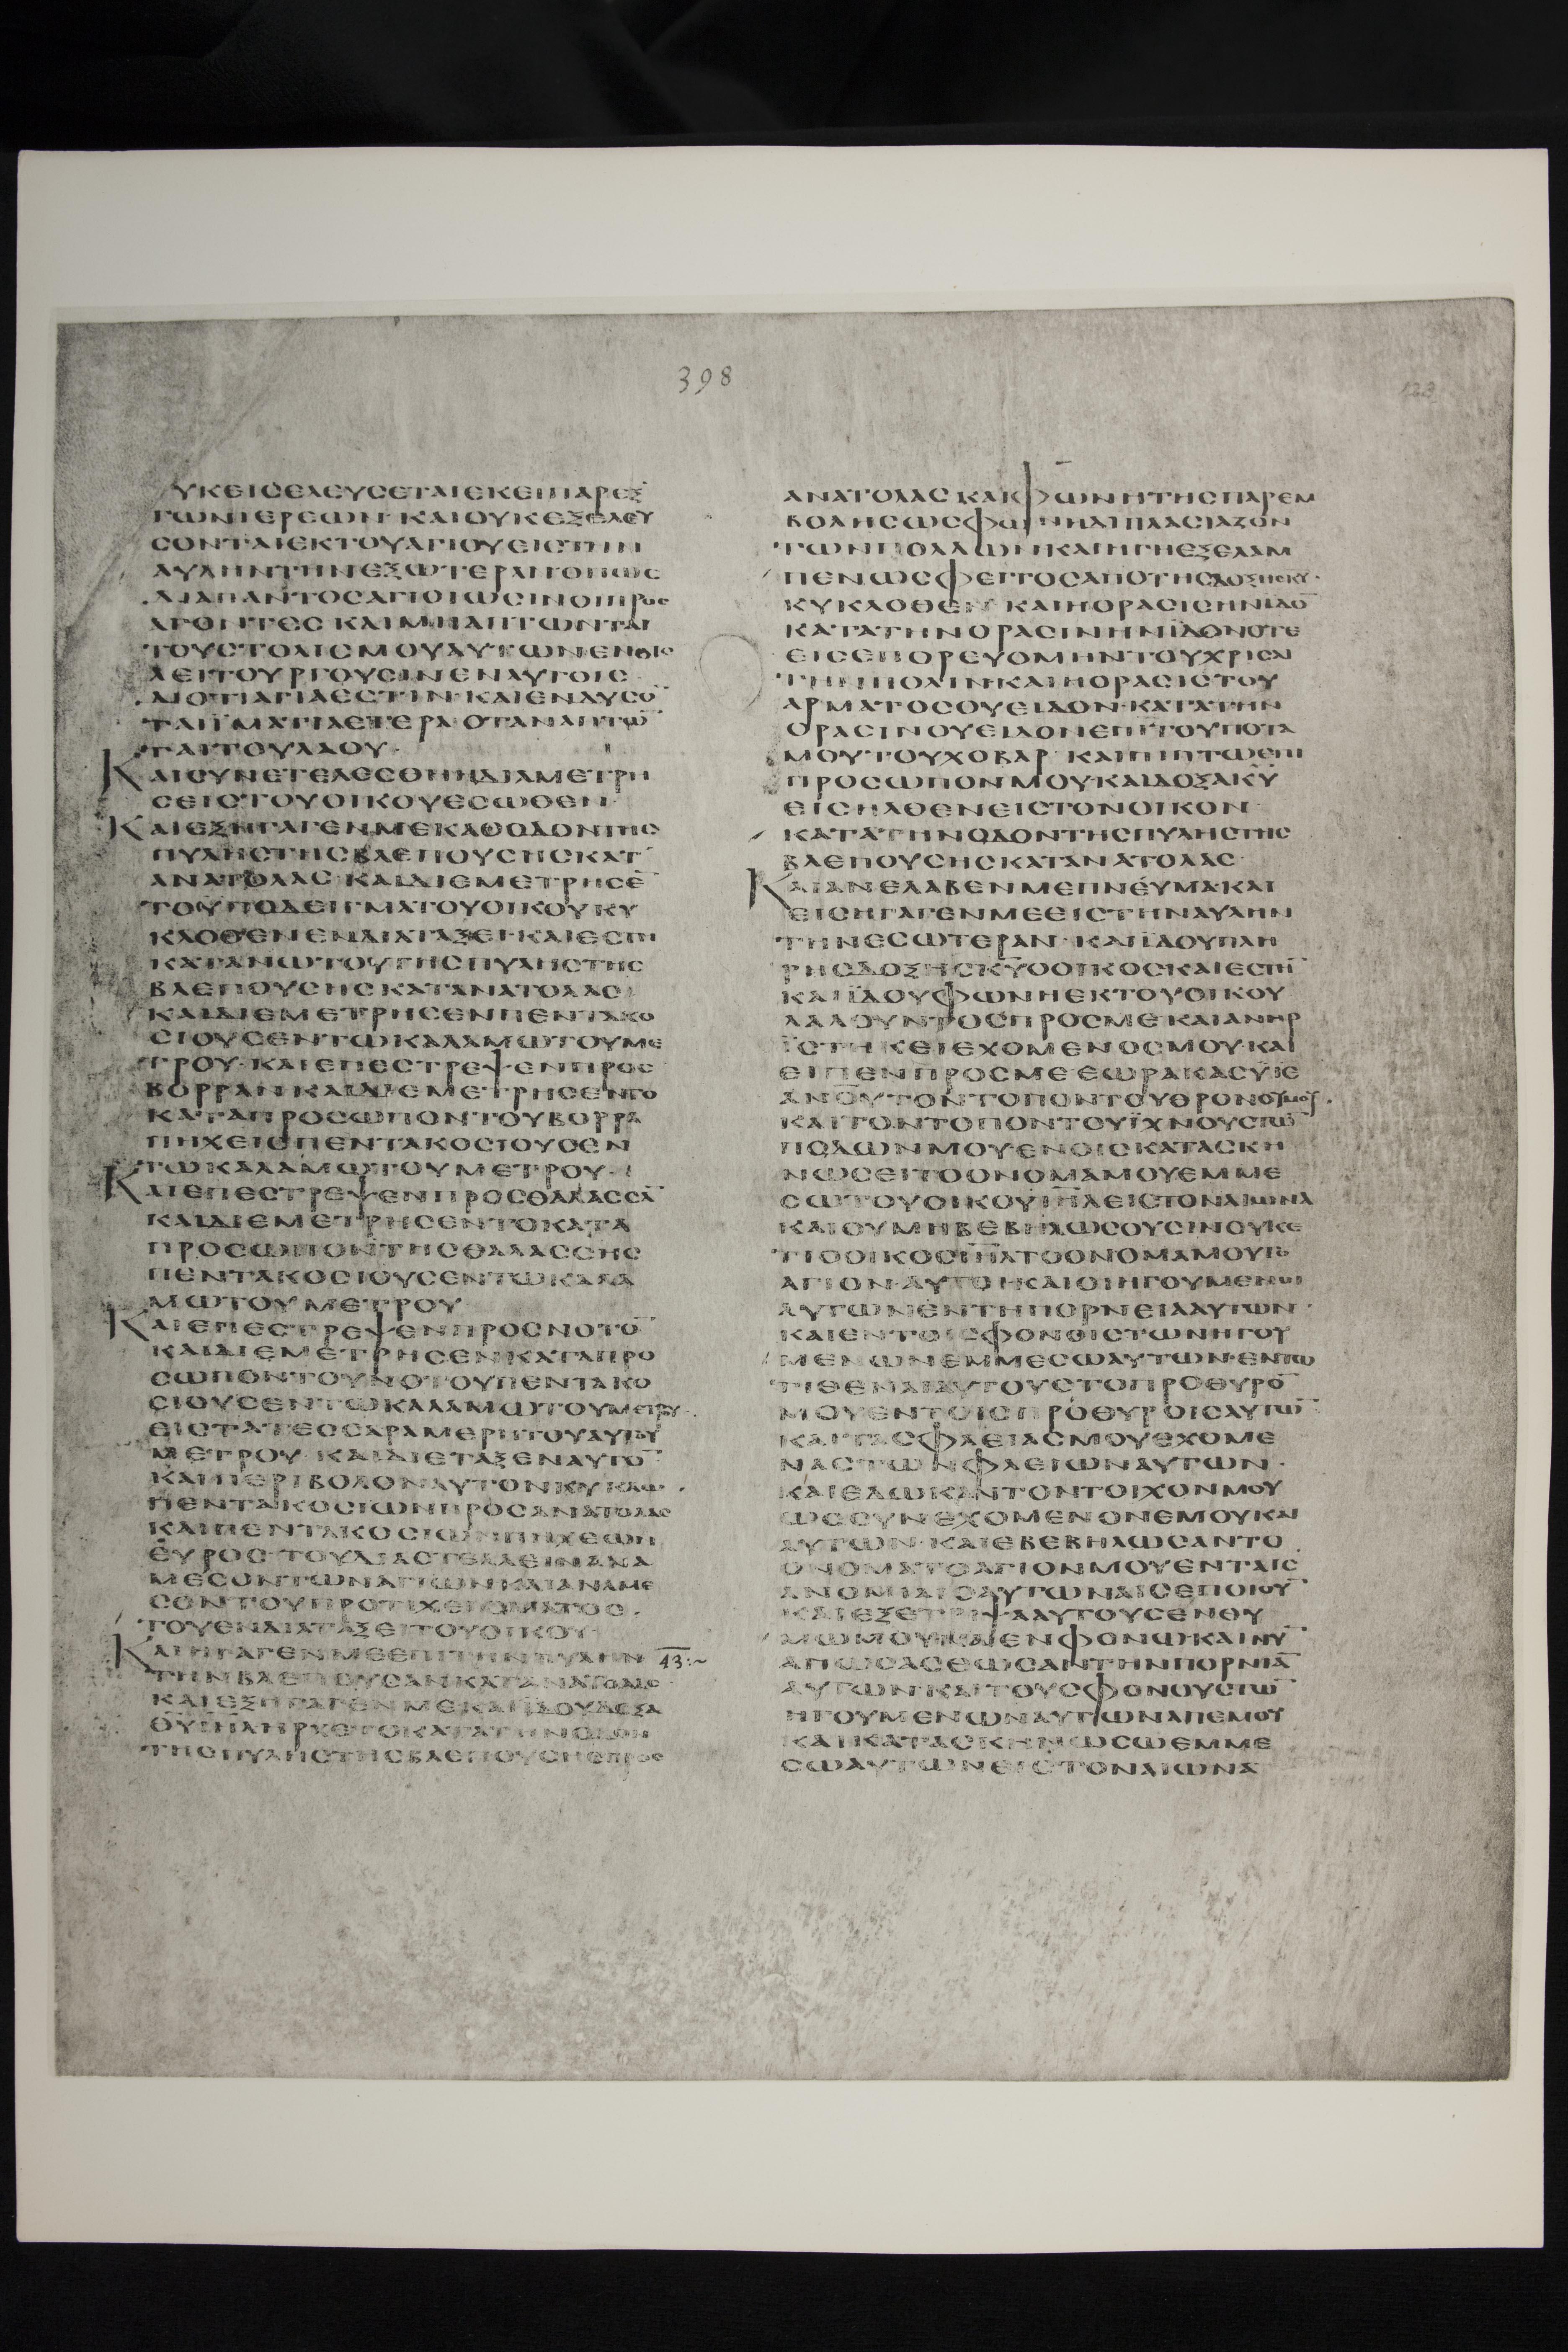 398
123
ΥΚΕΙCΕΛΕΥCΕΤΑΙΕΚΕΙΠΑΡΕΞ
ΤΩΝΙΕΡΕΩΝ·ΚΑΙΟΥΚΕΞΕΛΕΥ
CΟΝΤΑΙΕΚΤΟΥΑΓΙΟΥΕΙCΤΗΝ
ΑΥΛΗΝΤΗΝΕΞΩΤΕΡΑΝΟΠΩC
ΔΙΑΠΑΝΤΟCΑΓΙΟΙΩCΙΝΟΙΠΡΟC
ΑΓΟΝΤΕC ΚΑΙΜΗΑΠΤΩΝΤΑΙ
ΤΟΥCΤΟΛΙCΜΟΥΑΥΤΩΝΕΝΟΙC
ΛΕΙΤΟΥΡΓΟΥCΙΝΕΝΑΥΤΟΙC
ΔΙΟΤΙΑΓΙΑΕCΤΙΝ·ΚΑΙΕΝΔΥCΟ̅
ΤΑΙΪΜΑΤΙΑΕΤΕΡΑΟΤΑΝΑΠΤΩ̅
ΤΑΙΤΟΥΛΑΟΥ·
ΚΑΙCΥΝΕΤΕΛΕCΘΗΗΔΙΑΜΕΤΡΗ
CΕΙCΤΟΥΟΙΚΟΥΕCΩΘΕΝ·
ΚΑΙΕΞΗΓΑΓΕΝΜΕΚΑΘΟΔΟΝΤΗC
ΠΥΛΗCΤΗCΒΛΕΠΟΥCΗCΚΑΤ
ΑΝΑΤΟΛΑC·ΚΑΙΔΙΕΜΕΤΡΗCΕ̅
ΤΟΥΠΟΔΕΙΓΜΑΤΟΥΟΙΚΟΥΚΥ
ΚΛΟΘΕΝΕΝΔΙΑΤΑΞΕΙ·ΚΑΙΕCΤΗ
ΚΑΤΑΝΩΤΟΥΤΗCΠΥΛΗCΤΗC
ΒΛΕΠΟΥCΗCΚΑΤΑΝΑΤΟΛΑC
ΚΑΙΔΙΕΜΕΤΡΗCΕΝΠΕΝΤΑΚΟ
CΙΟΥCΕΝΤΩΚΑΛΑΜΩΤΟΥΜΕ
ΤΡΟΥ·ΚΑΙΕΠΕCΤΡΕΨΕΝΠΡΟC
ΒΟΡΡΑΝΚΑΙΔΙΕΜΕΤΡΗCΕΝΤΟ
ΚΑΤΑΠΡΟCΩΠΟΝΤΟΥΒΟΡΡΑ
ΠΗΧΕΙCΠΕΝΤΑΚΟCΙΟΥCΕΝ
ΤΩΚΑΛΑΜΩΤΟΥΜΕΤΡΟΥ·
ΚΑΙΕΠΕCΤΡΕΨΕΝΠΡΟCΘΑΛΑCCΑ̅
ΚΑΙΔΙΕΜΕΤΡΗCΕΝΤΟΚΑΤΑ
ΠΡΟCΩΠΟΝΤΗCΘΑΛΑCCΗC
ΠΕΝΤΑΚΟCΙΟΥCΕΝΤΩΚΑΛΑ
ΜΩΤΟΥΜΕΤΡΟΥ
ΚΑΙΕΠΕCΤΡΕΨΕΝΠΡΟCΝΟΤΟ̅
ΚΑΙΔΙΕΜΕΤΡΗCΕΝΚΑΤΑΠΡΟ
CΩΠΟΝΤΟΥΝΟΤΟΥΠΕΝΤΑΚΟ
CΙΟΥCΕΝΤΩΚΑΛΑΜΩΤΟΥΜΕΤΡΟΥ·
ΕΙCΤΑΤΕCCΑΡΑΜΕΡΗΤΟΥΑΥΤΟΥ
ΜΕΤΡΟΥ·ΚΑΙΔΙΕΤΑΞΕΝΑΥΤΟ̅
ΚΑΙΠΕΡΙΒΟΛΟΝΑΥΤΟΝΚΥΚΛΩ·
ΠΕΝΤΑΚΟCΙΩΝΠΡΟCΑΝΑΤΟΛΑC
ΚΑΙΠΕΝΤΑΚΟCΙΩΝΠΗΧΕΩΝ
ΕΥΡΟC·ΤΟΥΔΙΑCΤΕΛΛΕΙΝΑΝΑ
ΜΕCΟΝΤΩΝΑΓΙΩΝΚΑΙΑΝΑΜΕ
CΟΝΤΟΥΠΡΟΤΙΧΕΙCΜΑΤΟC·
ΤΟΥΕΝΔΙΑΤΑΞΕΙΤΟΥΟΙΚΟΥ·
ΚΑΙΗΓΑΓΕΝΜΕΕΠΙΤΗΝΠΥΛΗΝ 43:~
ΤΗΝΒΛΕΠΟΥCΑΝΚΑΤΑΝΑΤΟΛΑC
ΚΑΙΕΞΗΓΑΓΕΝΜΕΚΑΙΪΔΟΥΔΟΞΑ
Θ̅Υ̅Ι̅Η̅Λ̅ΗΡΧΕΤΟΚΑΤΑΤΗΝΟΔΟΝ
ΤΗCΠΥΛΗCΤΗCΒΛΕΠΟΥCΗCΠΡΟC
ΑΝΑΤΟΛΑC ΚΑΙΦΩΝΗΤΗCΠΑΡΕΜ
ΒΟΛΗCΩCΦΩΝΗΔΙΠΛΑCΙΑΖΟΝ
ΤΩΝΠΟΛΛΩΝΚΑΙΗΓΗΕΞΕΛΑΜ
ΠΕΝΩCΦΕΓΓΟCΑΠΟΤΗCΔΟΞΗCΚΥ·
ΚΥΚΛΟΘΕΝ ΚΑΙΗΟΡΑCΙCΗΝΙΔΟ̅
ΚΑΤΑΤΗΝΟΡΑCΙΝΗΝΪΔΟΝΟΤΕ
ΕΙCΕΠΟΡΕΥΟΜΗΝΤΟΥΧΡΙCΑΙ
ΤΗΝΠΟΛΙΝ·ΚΑΙΗΟΡΑCΙCΤΟΥ
ΑΡΜΑΤΟCΟΥΕΙΔΟΝ·ΚΑΤΑΤΗΝ
ΟΡΑCΙΝΟΥΕΙΔΟΝΕΠΙΤΟΥΠΟΤΑ
ΜΟΥΤΟΥΧΟΒΑΡ·ΚΑΙΠΙΠΤΩΕΠΙ
ΠΡΟCΩΠΟΝΜΟΥΚΑΙΔΟΞΑΚ̅Υ̅
ΕΙCΗΛΘΕΝΕΙCΤΟΝΟΙΚΟΝ·
ΚΑΤΑΤΗΝΟΔΟΝΤΗCΠΥΛΗCΤΗC
ΒΛΕΠΟΥCΗCΚΑΤΑΝΑΤΟΛΑC·
ΚΑΙΑΝΕΛΑΒΕΝΜΕΠΝΕΥΜΑ·ΚΑΙ
ΕΙCΗΓΑΓΕΝΜΕΕΙCΤΗΝΑΥΛΗΝ
ΤΗΝΕCΩΤΕΡΑΝ·ΚΑΙΪΔΟΥΠΛΗ
ΡΗCΔΟΞΗCΚ̅Υ̅ΟΟΙΚΟCΚΑΙΕCΤΗ̅
ΚΑΙΪΔΟΥΦΩΝΗΕΚΤΟΥΟΙΚΟΥ
ΛΑΛΟΥΝΤΟCΠΡΟCΜΕΚΑΙΑΝΗΡ
ΪCΤΗΚΕΙΕΧΟΜΕΝΟCΜΟΥ·ΚΑΙ
ΕΙΠΕΝΠΡΟCΜΕΕΩΡΑΚΑCΥΙΕ
ΑΝΟΥΤΟΝΤΟΠΟΝΤΟΥΘΡΟΝΟΥΜΟΥ·
ΚΑΙΤΟΝΤΟΠΟΝΤΟΥΪΧΝΟΥCΤΩ̅
ΠΟΔΩΝΜΟΥΕΝΟΙCΚΑΤΑCΚΗ
ΝΩCΕΙΤΟΟΝΟΜΑΜΟΥΕΜΜΕ
CΩΤΟΥΟΙΚΟΥΙ̅Η̅Λ̅ΕΙCΤΟΝΑΙΩΝΑ
ΚΑΙΟΥΜΗΒΕΒΗΛΩCΟΥCΙΝΟΥΚΕ
ΤΙΟΟΙΚΟCΙ̅Η̅Λ̅ΤΟΟΝΟΜΑΜΟΥΤΟ
ΑΓΙΟΝ·ΑΥΤΟΙΚΑΙΟΙΗΓΟΥΜΕΝΟΙ
ΑΥΤΩΝΕΝΤΗΠΟΡΝΕΙΑΑΥΤΩΝ·
ΚΑΙΕΝΤΟΙCΦΟΝΟΙCΤΩΝΗΓΟΥ
ΜΕΝΩΝΕΜΜΕCΩΑΥΤΩΝ·ΕΝΤΩ
ΤΙΘΕΝΑΙΑΥΤΟΥCΤΟΠΡΟΘΥΡΟ̅
ΜΟΥΕΝΤΟΙCΠΡΟΘΥΡΟΙCΑΥΤΩ̅
ΚΑΙΤΑCΦΛΕΙΑCΜΟΥΕΧΟΜΕ
ΝΑCΤΩΝΦΛΕΙΩΝΑΥΤΩΝ·
ΚΑΙΕΔΩΚΑΝΤΟΝΤΟΙΧΟΝΜΟΥ
ΩCCΥΝΕΧΟΜΕΝΟΝΕΜΟΥΚΑΙ
ΑΥΤΩΝ·ΚΑΙΕΒΕΒΗΛΩCΑΝΤΟ
ΟΝΟΜΑΤΟΑΓΙΟΝΜΟΥΕΝΤΑΙC
ΑΝΟΜΙΑΙCΑΥΤΩΝΑΙCΕΠΟΙΟΥ̅
ΚΑΙΕΞΕΤΡΙΨΑΑΥΤΟΥCΕΝΘΥ
ΜΩΜΟΥΚΑΙΕΝΦΟΝΩ·ΚΑΙΝΥ̅
ΑΠΩCΑCΘΩCΑΝΤΗΝΠΟΡΝΙΑ̅
ΑΥΤΩΝ·ΚΑΙΤΟΥCΦΟΝΟΥCΤΩ̅
ΗΓΟΥΜΕΝΩΝΑΥΤΩΝΑΠΕΜΟΥ
ΚΑΙΚΑΤΑCΚΗΝΩCΩΕΜΜΕ
CΩΑΥΤΩΝΕΙCΤΟΝΑΙΩΝΑ